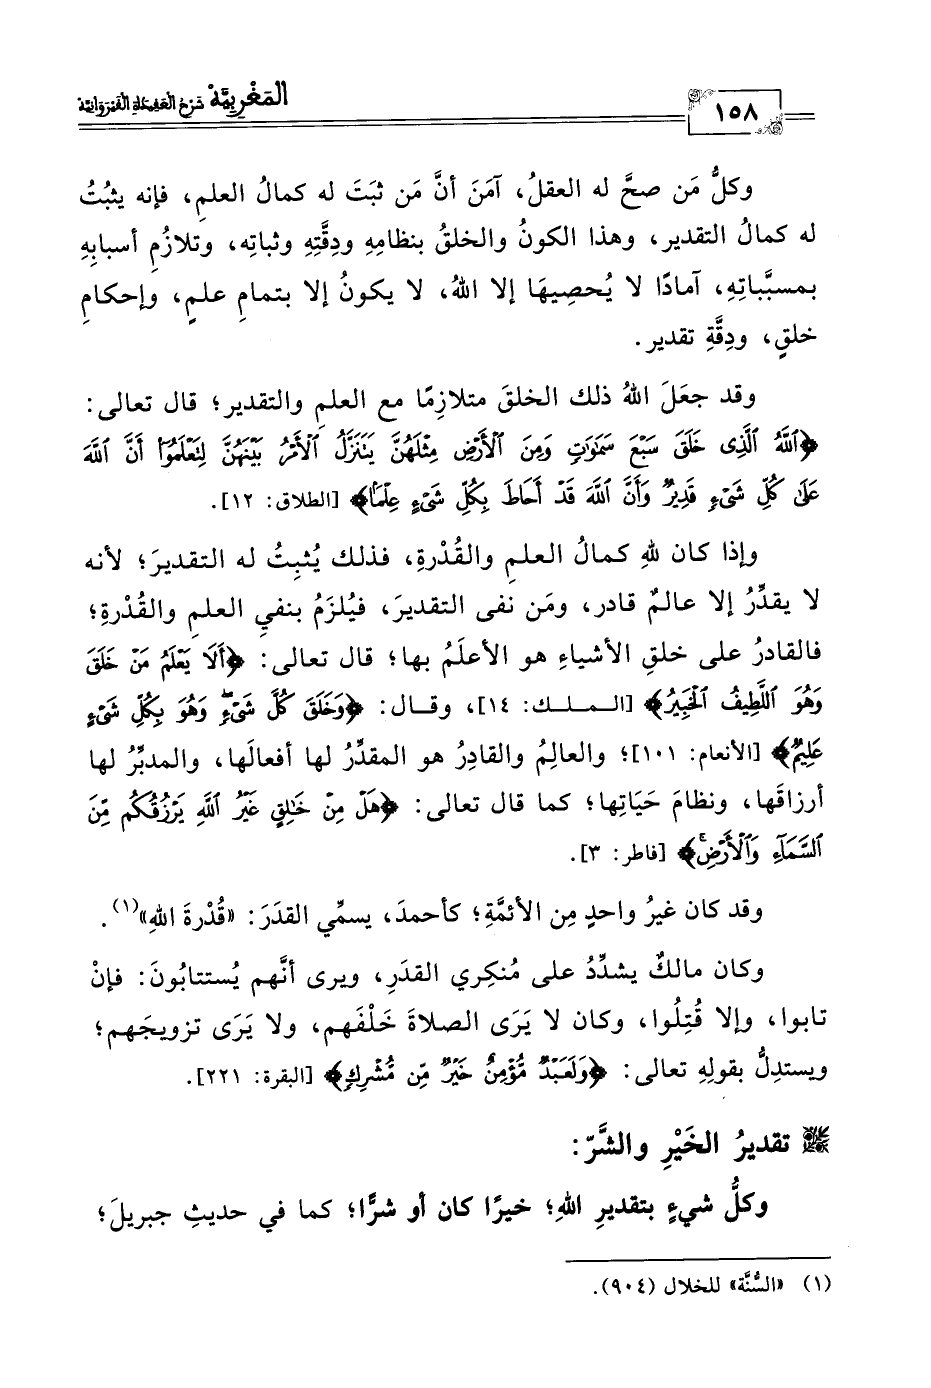 المَغْرِبِيَّة شَرْحُ العَقِيدَةِ القَيْرَوَانِيَّة
١٥٨
وكلُّ مَن صحَّ له العقلُ، آمَنَ أنَّ مَن ثبَتَ له كمالُ العلمِ، فإنه يثبُتُ
له كمالُ التقدير، وهذا الكونُ والخلقُ بنظامِهِ ودِقَّتِهِ وثباتِه، وتلازُمِ أسبابِهِ
بمسبَّباتِهِ، آمادًا لا يُحصِيهَا إلا اللهُ، لا يكونُ إلا بتمامِ علمٍ، وإحكامِ
خلقٍ، ودِقَّةِ تقدير.
وقد جعَلَ اللهُ ذلك الخلقَ متلازِمًا مع العلمِ والتقديرِ؛ قال تعالى:
﴿ٱللَّهُ ٱلَّذِى خَلَقَ سَبْعَ سَمَٰوَٰتٍ وَمِنَ ٱلْأَرْضِ مِثْلَهُنَّ يَتَنَزَّلُ ٱلْأَمْرُ بَيْنَهُنَّ لِتَعْلَمُوٓا۟ أَنَّ ٱللَّهَ
عَلَىٰ كُلِّ شَىْءٍ قَدِيرٌ وَأَنَّ ٱللَّهَ قَدْ أَحَاطَ بِكُلِّ شَىْءٍ عِلْمًۢا﴾ [الطلاق: ١٢].
وإذا كان للهِ كمالُ العلمِ والقُدْرةِ، فذلك يُثبِتُ له التقديرَ؛ لأنه
لا يقدِّرُ إلا عالمٌ قادر، ومَن نفى التقديرَ، فيُلزَمُ بنفيِ العلمِ والقُدْرةِ؛
فالقادرُ على خلقِ الأشياءِ هو الأعلَمُ بها؛ قال تعالى: ﴿أَلَا يَعْلَمُ مَنْ خَلَقَ
وَهُوَ ٱللَّطِيفُ ٱلْخَبِيرُ﴾ [الملك: ١٤]، وقال: ﴿وَخَلَقَ كُلَّ شَىْءٍۖ وَهُوَ بِكُلِّ شَىْءٍ
عَلِيمٌ﴾ [الأنعام: ١٠١]؛ والعالِمُ والقادِرُ هو المقدِّرُ لها أفعالَها، والمدبِّرُ لها
أرزاقَها، ونظامَ حَيَاتِها؛ كما قال تعالى: ﴿هَلْ مِنْ خَٰلِقٍ غَيْرُ ٱللَّهِ يَرْزُقُكُم مِّنَ
ٱلسَّمَآءِ وَٱلْأَرْضِۚ﴾ [فاطر: ٣].
وقد كان غيرُ واحدٍ مِن الأئمَّةِ؛ كأحمدَ، يسمِّي القدَرَ: «قُدْرةَ اللهِ»(١).
وكان مالكٌ يشدِّدُ على مُنكِري القدَرِ، ويرى أنَّهم يُستتابُونَ: فإنْ
تابوا، وإلا قُتِلُوا، وكان لا يَرَى الصلاةَ خَلْفَهم، ولا يَرَى تزويجَهم؛
ويستدِلُّ بقولِهِ تعالى: ﴿وَلَعَبْدٌ مُّؤْمِنٌ خَيْرٌ مِّن مُّشْرِكٍ﴾ [البقرة: ٢٢١].
تقديرُ الخَيْرِ والشَّرّ:
وكلُّ شيءٍ بتقديرِ اللهِ؛ خيرًا كان أو شرًّا؛ كما في حديثِ جبريلَ؛
(١) «السُّنَّة» للخلال (٩٠٤).